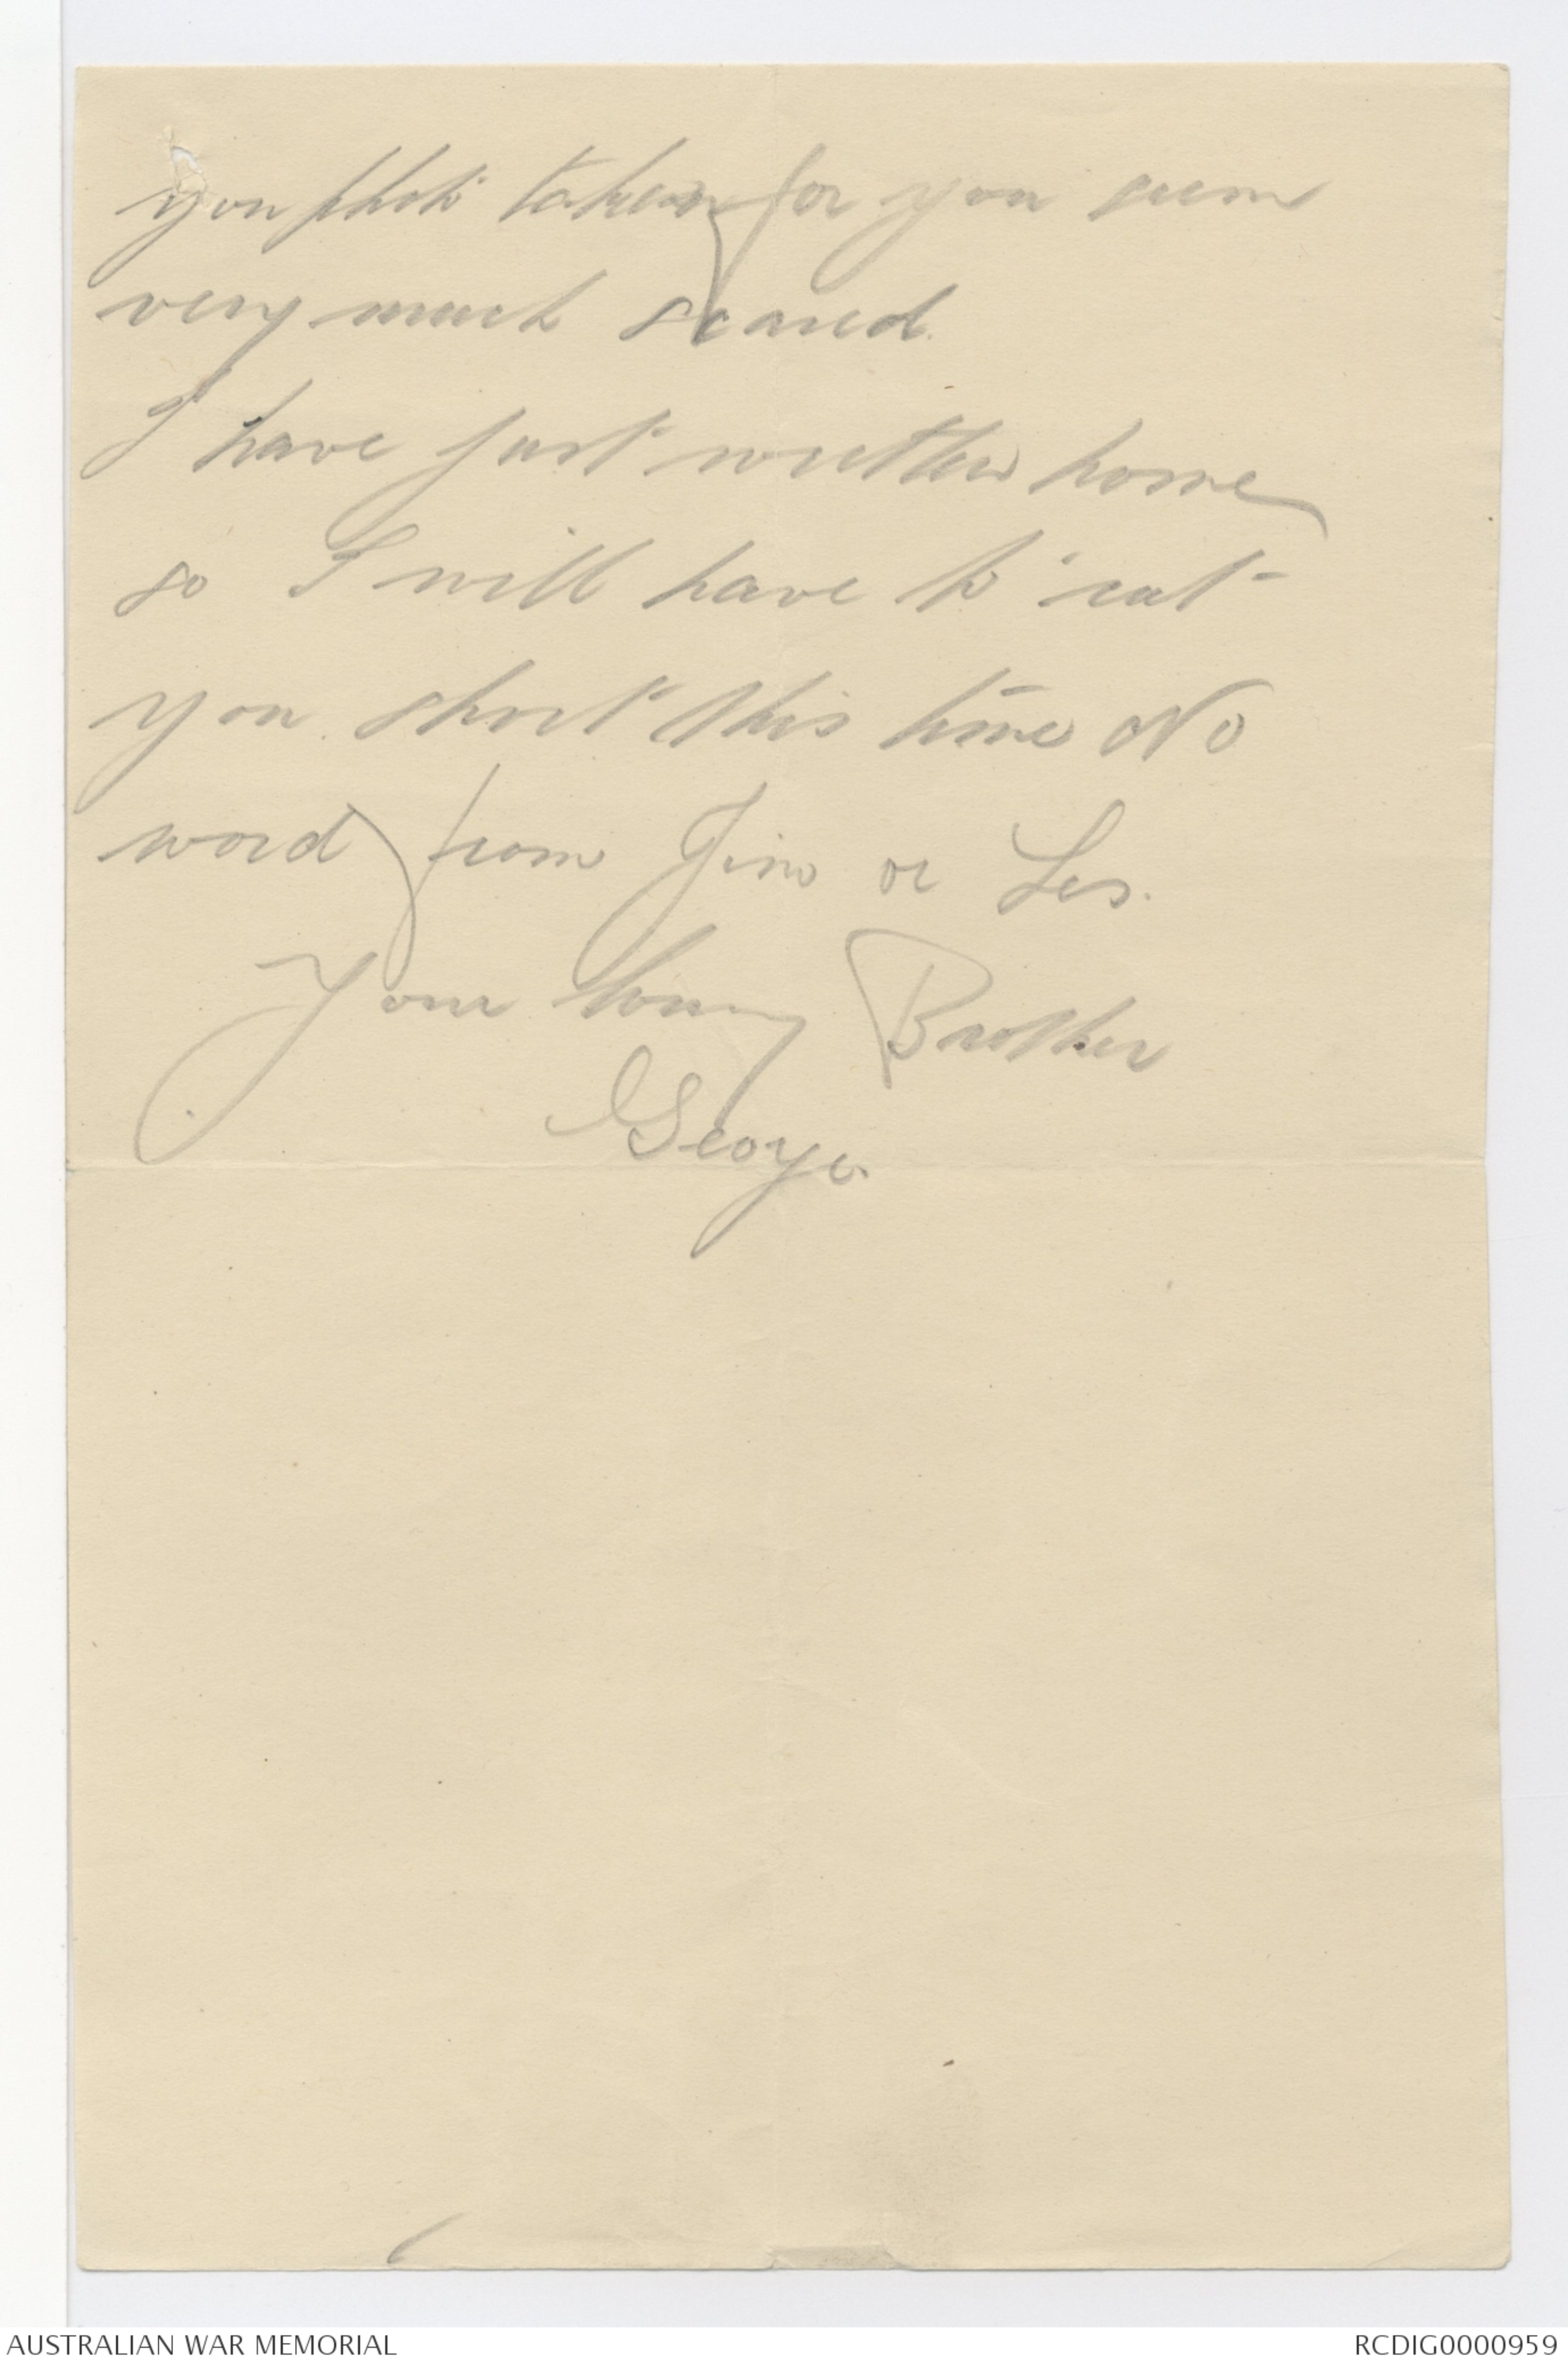 you photo taken for you seem
very much scared.
I have just written home
so I will have to cut
you short this time No
word from Jim or Les.
Your loving Brother
George.
AUSTRALIAN WAR MEMORIAL
RCDIG0000959